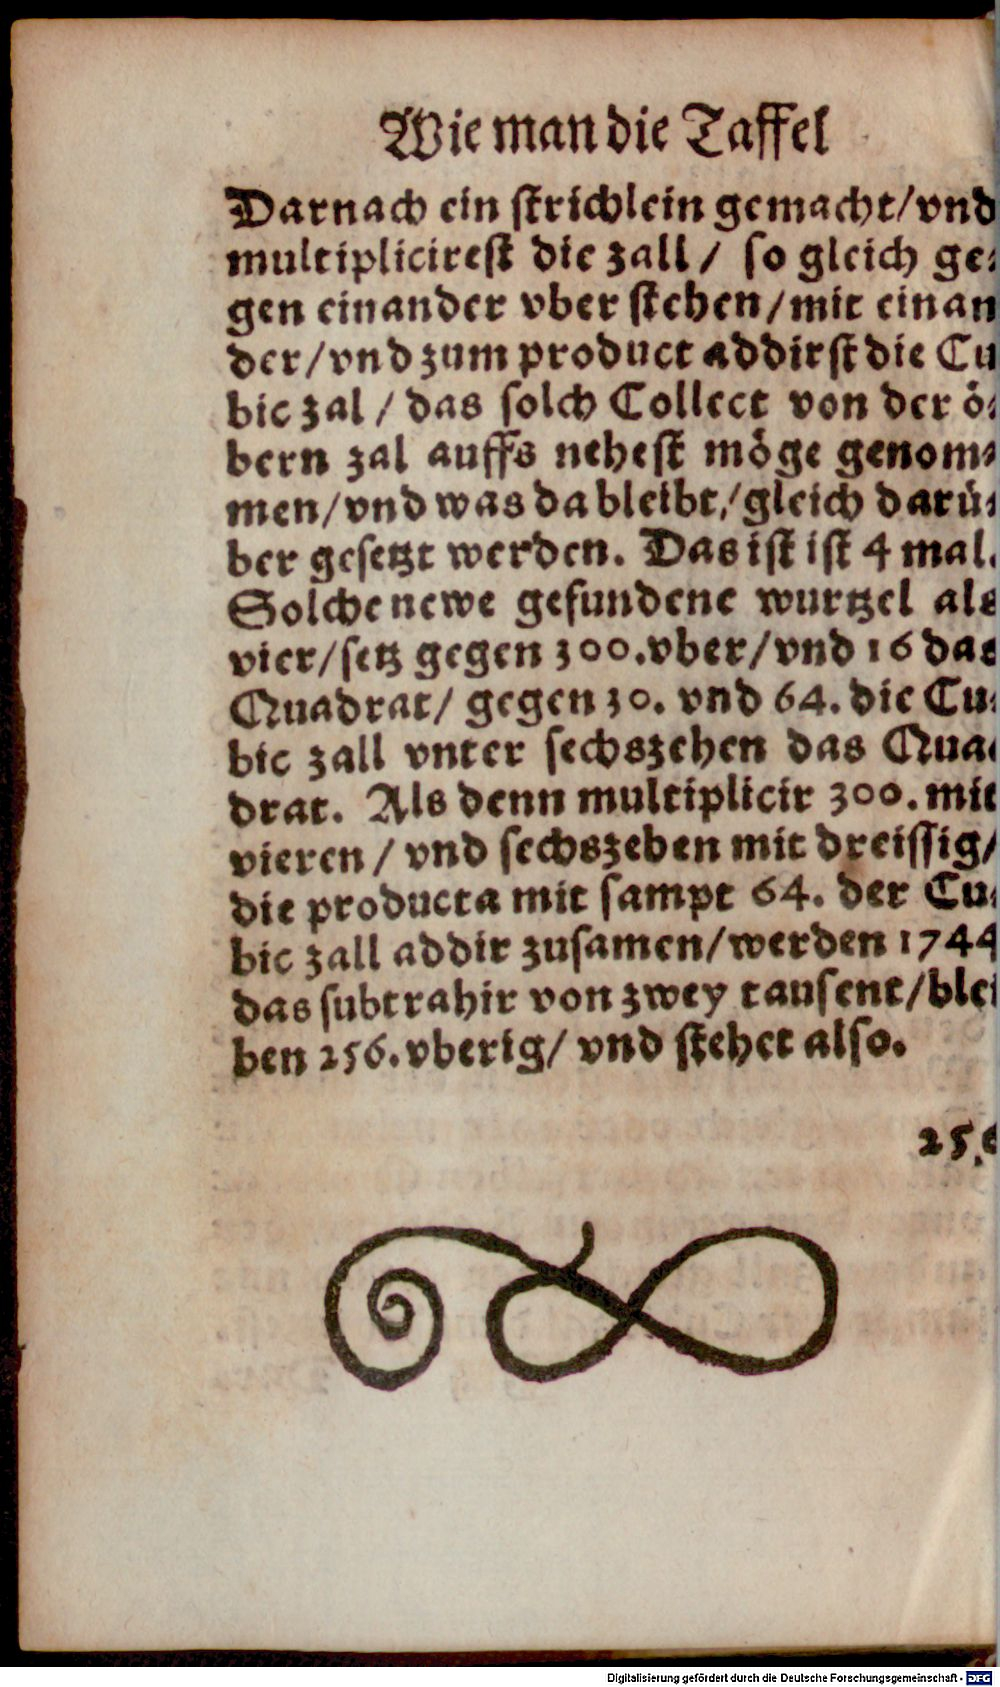 Wie man die Taffel
Darnach ein strichlein gemacht/vnd
multiplicirest die zall/ so gleich ge⸗
gen einander vber stehen/mit einan
der/vnd zum product addirst die Cu
bic zal/das solch Collect von der ö⸗
bern zal auffs nehest möge genom⸗
men/vnd was da bleibt/gleich darü⸗
ber gesetzt werden. Das ist ist 4 mal.
Solche newe gefundene wurtzel als
vier/setz gegen 300.vber/vnd 16 das
Quadrat/ gegen 30. vnd 64. die Cu⸗
bic zall vnter sechszehen das Qua⸗
drat. Als denn multiplicir 300. mit
vieren/vnd sechszehen mit dreissig/
die producta mit sampt 64. der Cu⸗
bic zall addir zusamen/werden 1744
das subtrahir von zwey tausent/blei
ben 256.vberig/ vnd stehet also.
256
Digitalisierung gefördert durch die Deutsche Forschungsgemeinschaft - DFG